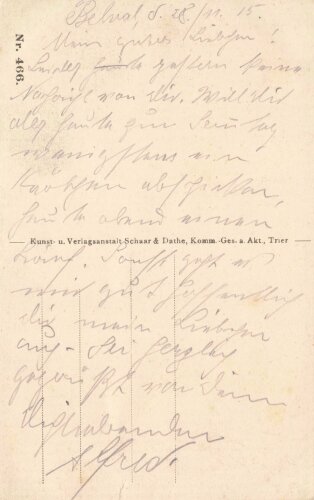 Belval, d. 28./11. 15.
Mein gutes Liebchen!
Leider heute gestern keine
Nachricht von dir. Will dir
aber heute zum Sonntag
wenigstens ein
Kärtchen abschicken,
heute abend einen
Kunst- u. Verlagsanstalt Schaar & Dathe, Komm.-Ges. a. Akt., Trier
Brief. Sonst geht es
mir gut hoffentlich
dir mein Liebchen
auch. Sei herzlich
gegrüßt von dein
dichliebenden
Alfred.
Nr. 466.